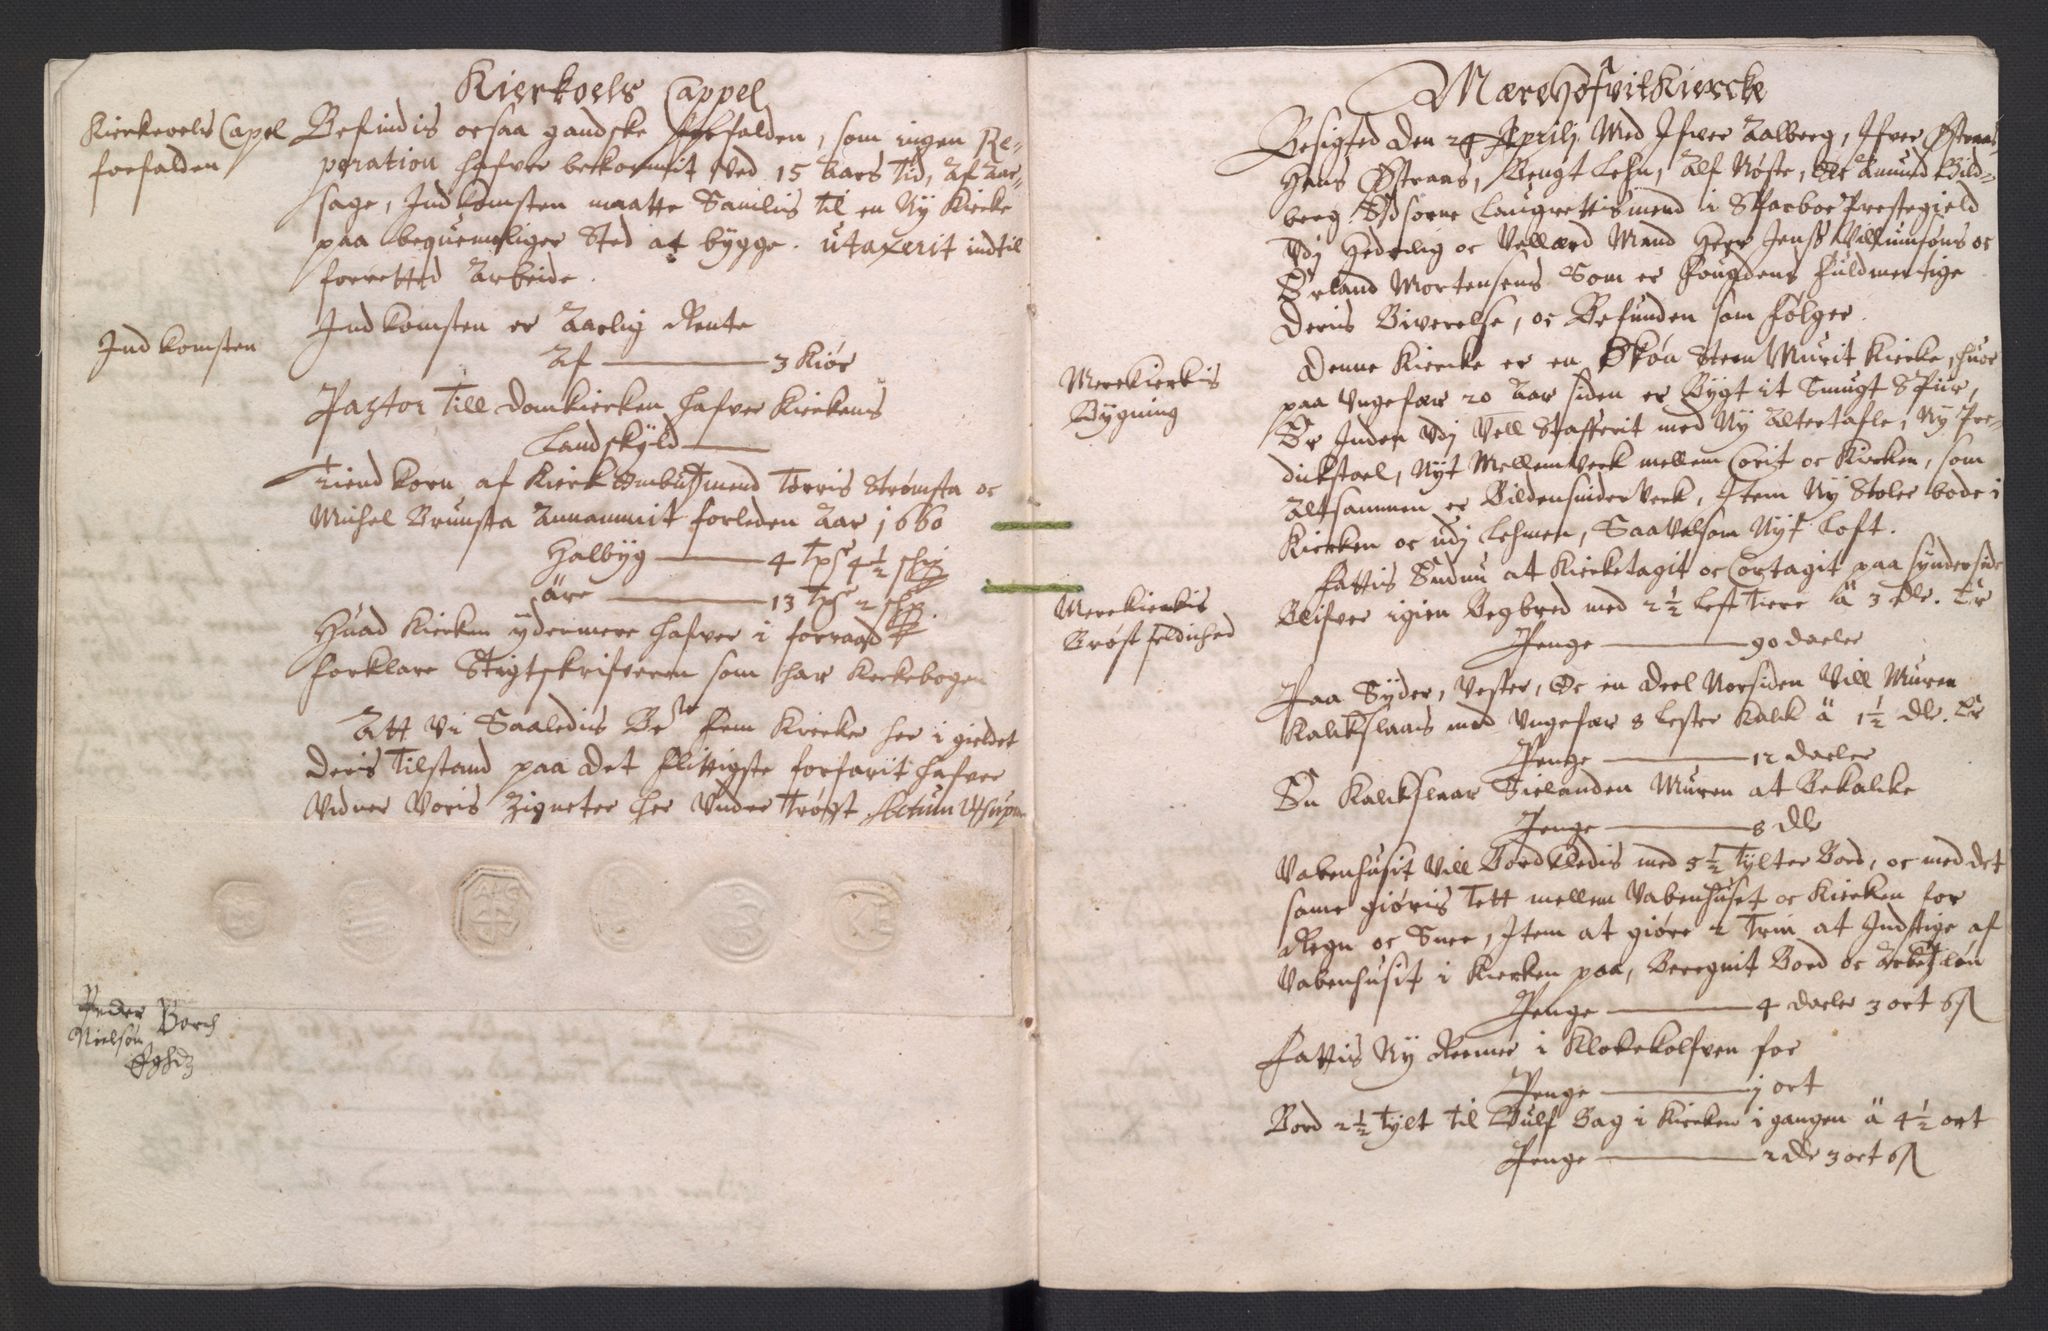 Kierkoels Cappel
Kierkevels Capel
forfalden
Befindis ocsaa gandske forfalden, som ingen Re-
peration hafver bekommit Ved 15 Aars Tid, Af Aar-
sage, Indkomsten maatte Samlis til en Ny Kircke
paa bequemeliger Sted at bygge. utaxerit indtil
forretted Arbeide.
Indkomsten
Indkomsten er Aarlig Rente
Af 3 Kiör
Pastor Till Domkircken hafver Kirckens
Landskÿld
Tiend Korn af Kierk Ombutzmend Torris Strømsta oc
Michel Brunsta Annammit forleden Aar 1660
Halbÿg 4 Tpn 4½
äre 13 Tpn 2
Huad Kircken ydermere hafver i forraad
forklare Stigtskrifveren som har Kirckebogen
Att Vi Saaledis Be.te fem Kircker her i gieldet
Deris Tilstand paa det flittigste forfarit hafver
Vidner Voris Zigneter her Under trögt Actum Ut supra
Peder Borch
Nielsøn
Eghdz
Mære Hofvit Kiercke
Besigted Den 24 Aprilj Med Ifver Aalberg, Ifver Østraas
Hans Østraas, Bengt Lehn, Alf Nøste, Oc Amund Bild-
berg Edsorne Laugrettismend i Sparboe Prestegield
Udj Hederlig oc Vellærd Mand Herr Jenss Villumsöns oc
Erland Mortensens Som er Fougdens fuldmectige
Deris Biverelse, oc Befunden som følger.
Merekierkis
Bygning
Denne Kiercke er en Skøn Steen Murit Kircke, huor
paa Ungefær 20 Aar siden er Bÿgt it Smugt Spiir,
Er Inden Udj Vell Stafferit med Nÿ Altertafle, Nÿ Pre-
dickstoel, Nÿt Mellemverk mellem Corit oc Kircken, som
altsammen er Bildensnider Verk, Item Nÿ Stoler bode i
Kircken oc udj Lehmen, Saa Velsom Nÿt Loft.
Merekierkis
Bröstfeldighed
Fattis Endnu at Kircketagit oc Cortagit paa synderside
Blifver igien Begbred med 2½ Lest Tiere ä 3 Dlr. Er
Penge 90 daler
Paa Sÿder, Vester, Oc en deel Norsiden Vill Muren
Kalckslaais med Ungefær 8 Lester Kalck ä 1½ Dlr. Er
Penge 12 daeler
En Kalckslaar Muren at Bekalcke
Penge 8 Dlr
Vabenhusit Vill Bordkledis med 5½ Tÿlter Bord, oc med det
same giöris Tett mellem Vabenhuset oc Kircken for
Regn oc Snee, Item at giöre 2 Trin at Indstige af
Vabenhusit i Kircken paa, Beregnit Bord oc Arbetzløn
Penge 4 daler 3 ort 6 ß
Fattis Nÿ Reemer i Klokekolfven for
Penge j ort
Bord 2½ Tÿlt til Gulf Bag i Kircken i gangen ä 4½ ort
Penge 2 Dlr 3 ort 6 ß